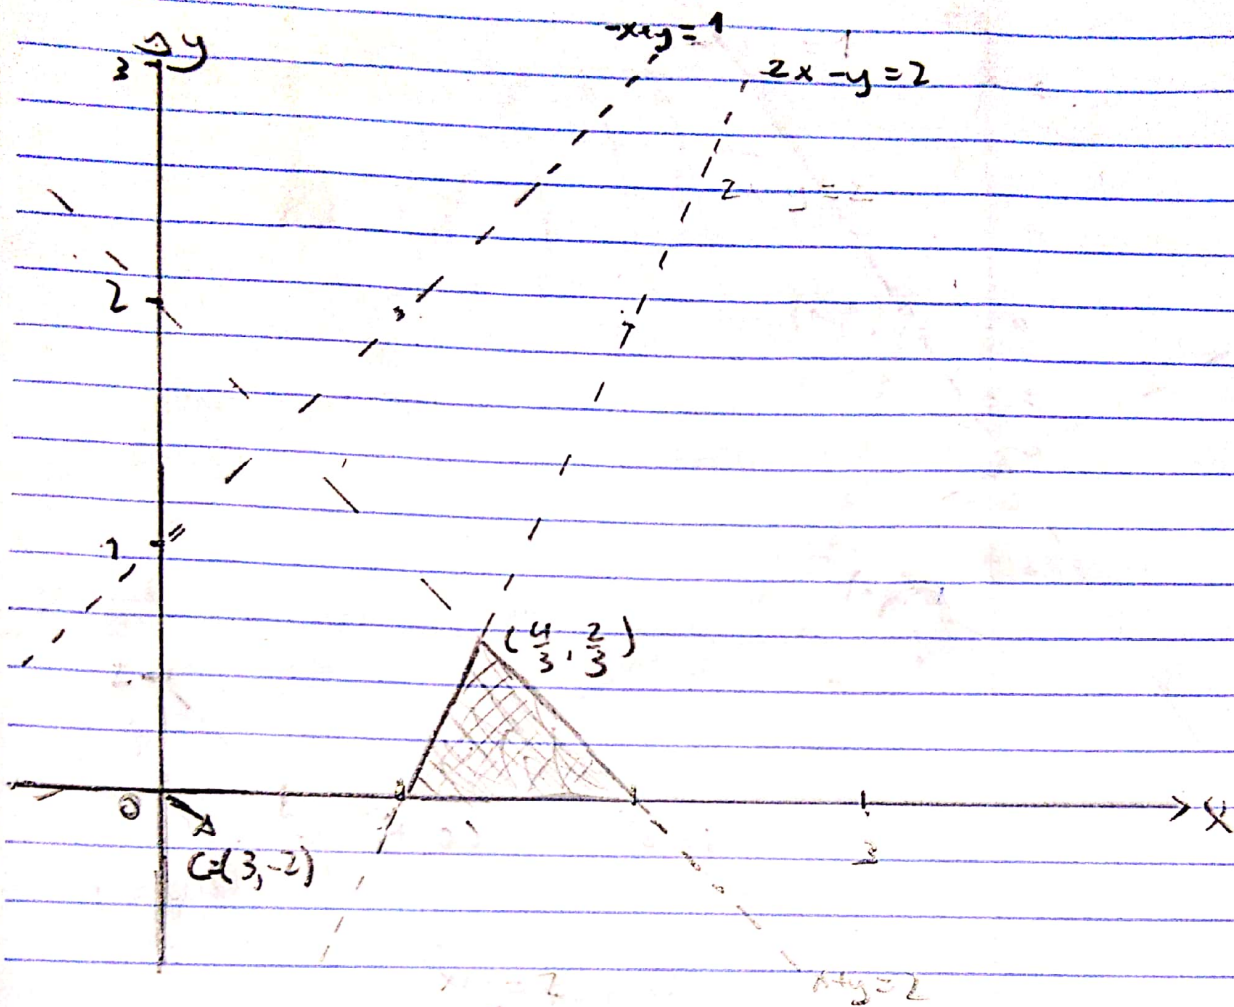 -x+y=1
y
3
2x-y=2
2
1
(4/3, 2/3)
0
x
C=(3,-2)
3
x+y=2